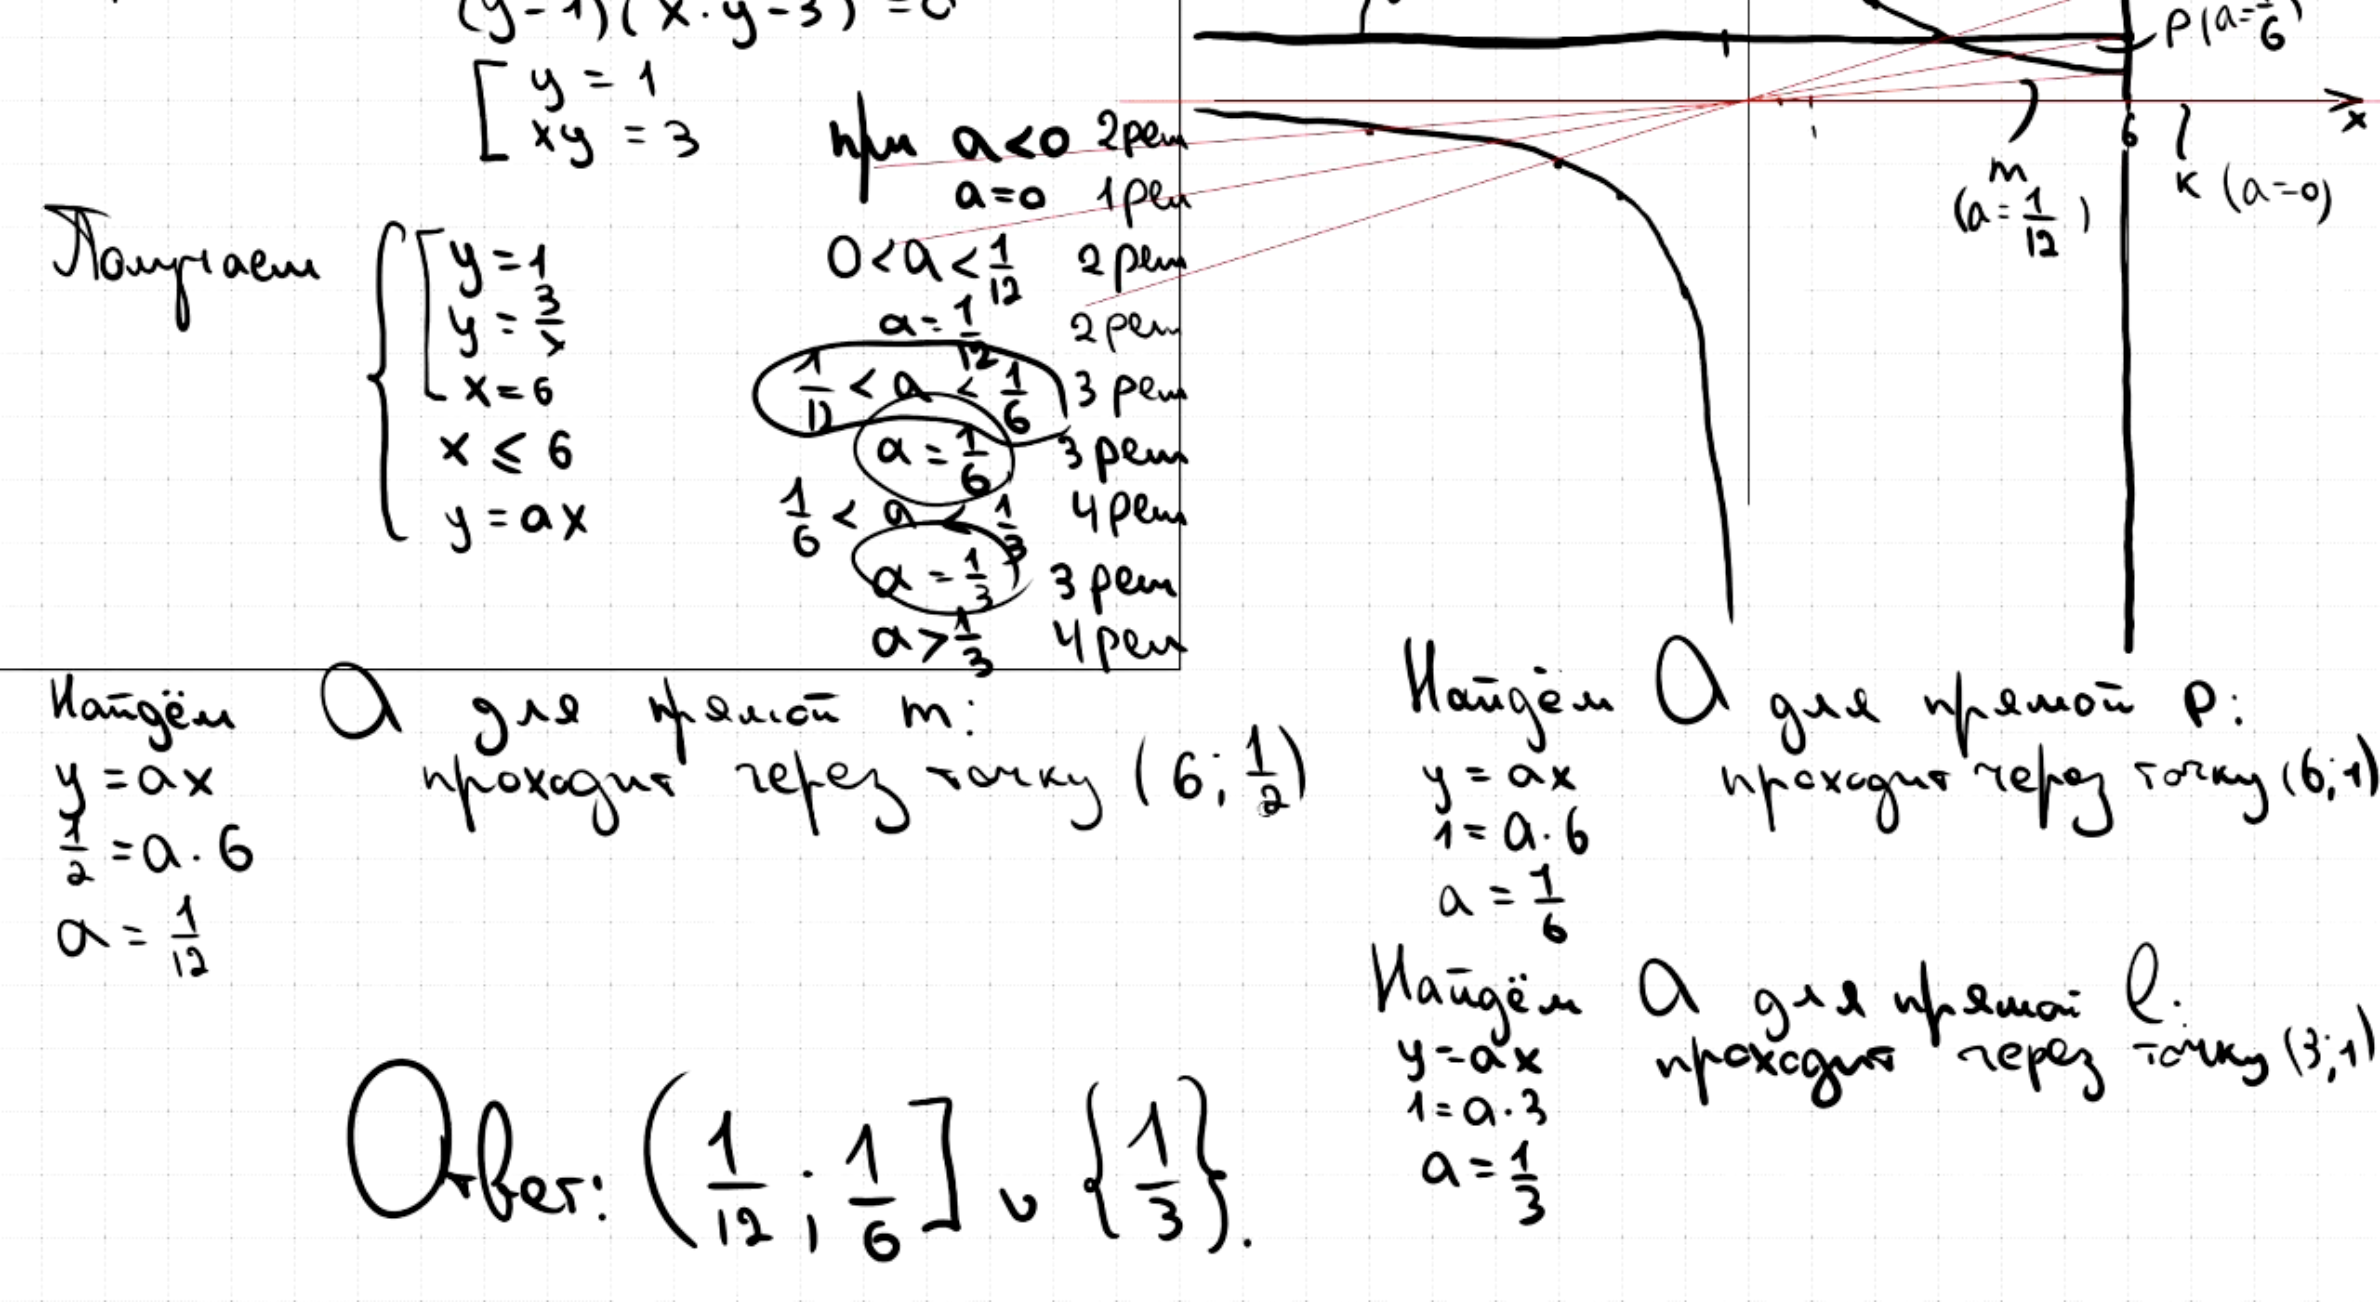 (y-1)(x·y-3) = 0
[ y = 1
xy = 3
Получаем { [ y = 1
y = 3/x
x = 6
x ⩽ 6
y = ax
при a<0 2реш
a=0 1реш
0<a<1/12 2реш
a=1/12 2реш
1/12 < a < 1/6 3реш
a = 1/6 3реш
1/6 < a < 1/3 4реш
a = 1/3 3реш
a > 1/3 4реш
P (a=1/6)
x
6
m
(a=1/12)
K (a=0)
Найдём a для прямой m:
y = ax проходит через точку (6; 1/2)
1/2 = a·6
a = 1/12
Найдём a для прямой P:
y = ax проходит через точку (6;1)
1 = a·6
a = 1/6
Найдём a для прямой l:
y = ax проходит через точку (3;1)
1 = a·3
a = 1/3
Ответ: (1/12; 1/6] ∪ {1/3}.